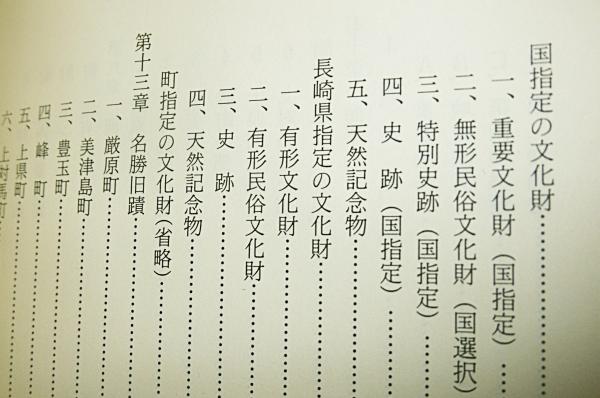 国指定の文化財
一、重要文化財（国指定）
二、無形民俗文化財（国選択）
三、特別史跡（国指定）
四、史　跡（国指定）
五、天然記念物
長崎県指定の文化財
一、有形文化財
二、有形民俗文化財
三、史　跡
四、天然記念物
町指定の文化財（省略）
第十三章　名勝旧蹟
一、厳原町
二、美津島町
三、豊玉町
四、峰　町
五、上県町
六、上対馬町